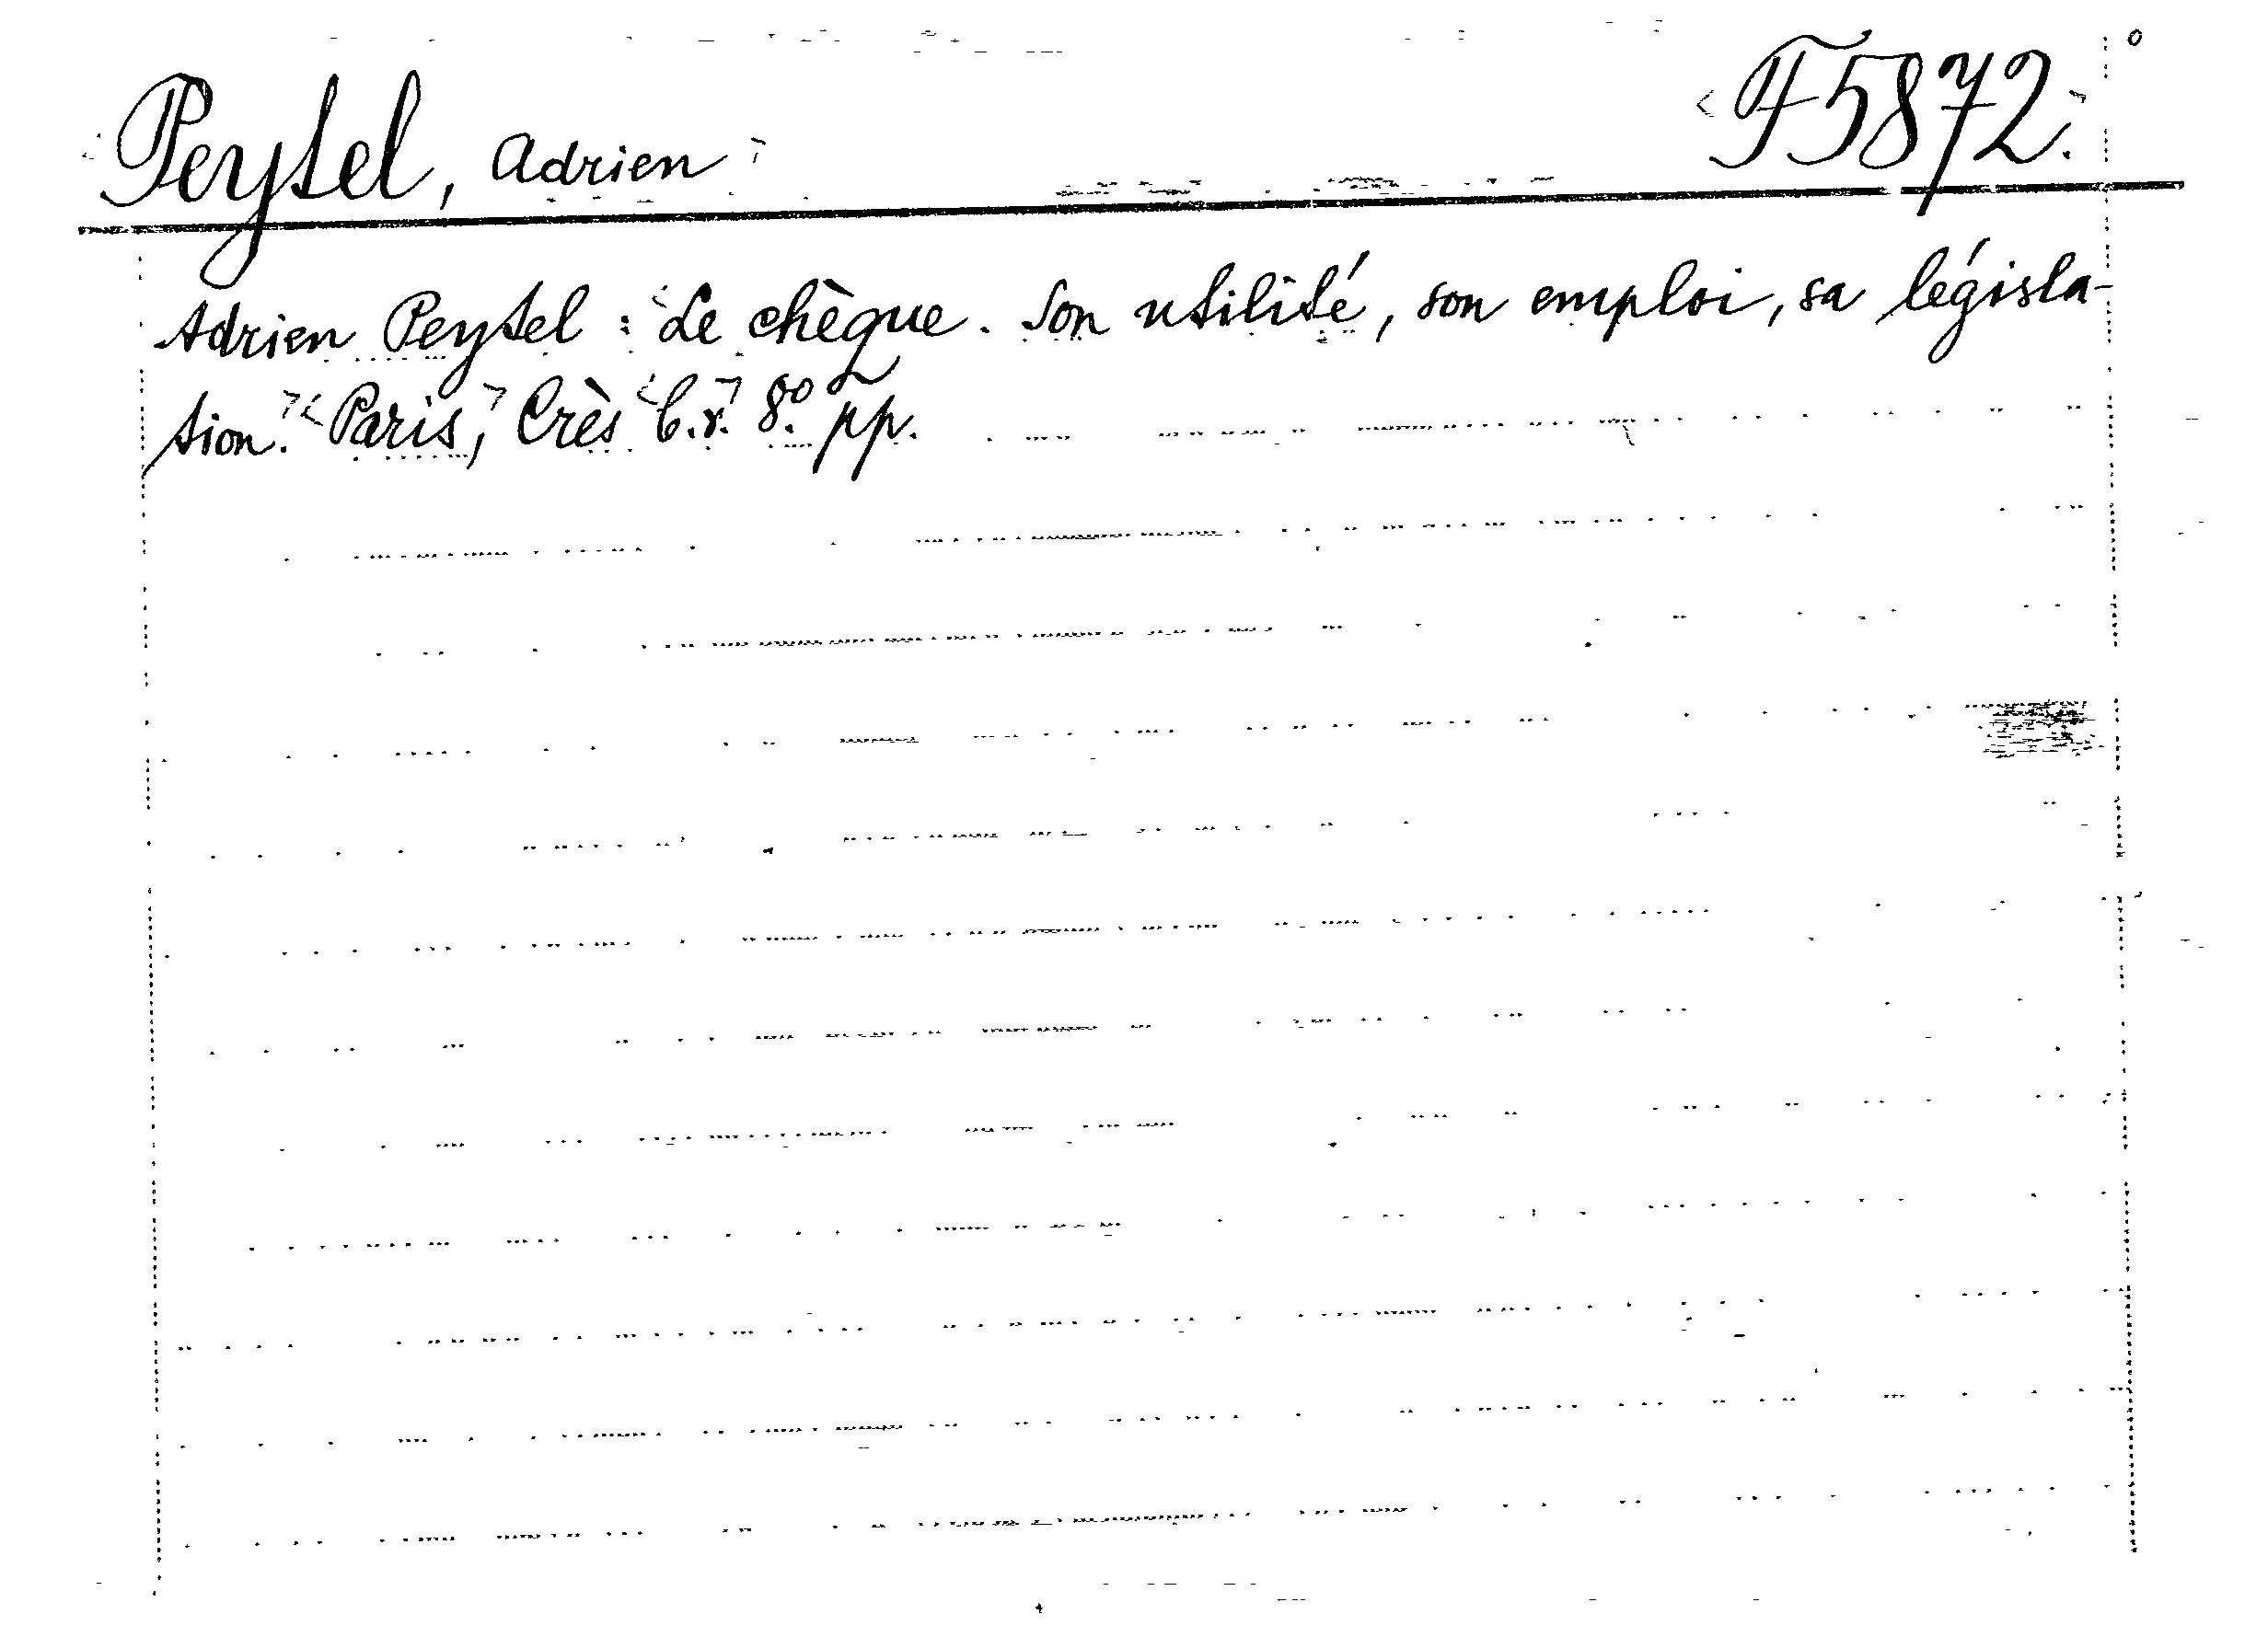 Peytel, Adrien
F 5872.
Adrien Peytel : Le chèque. Son utilité, son emploi, sa législa-
tion. Paris, Crès 8° pp.